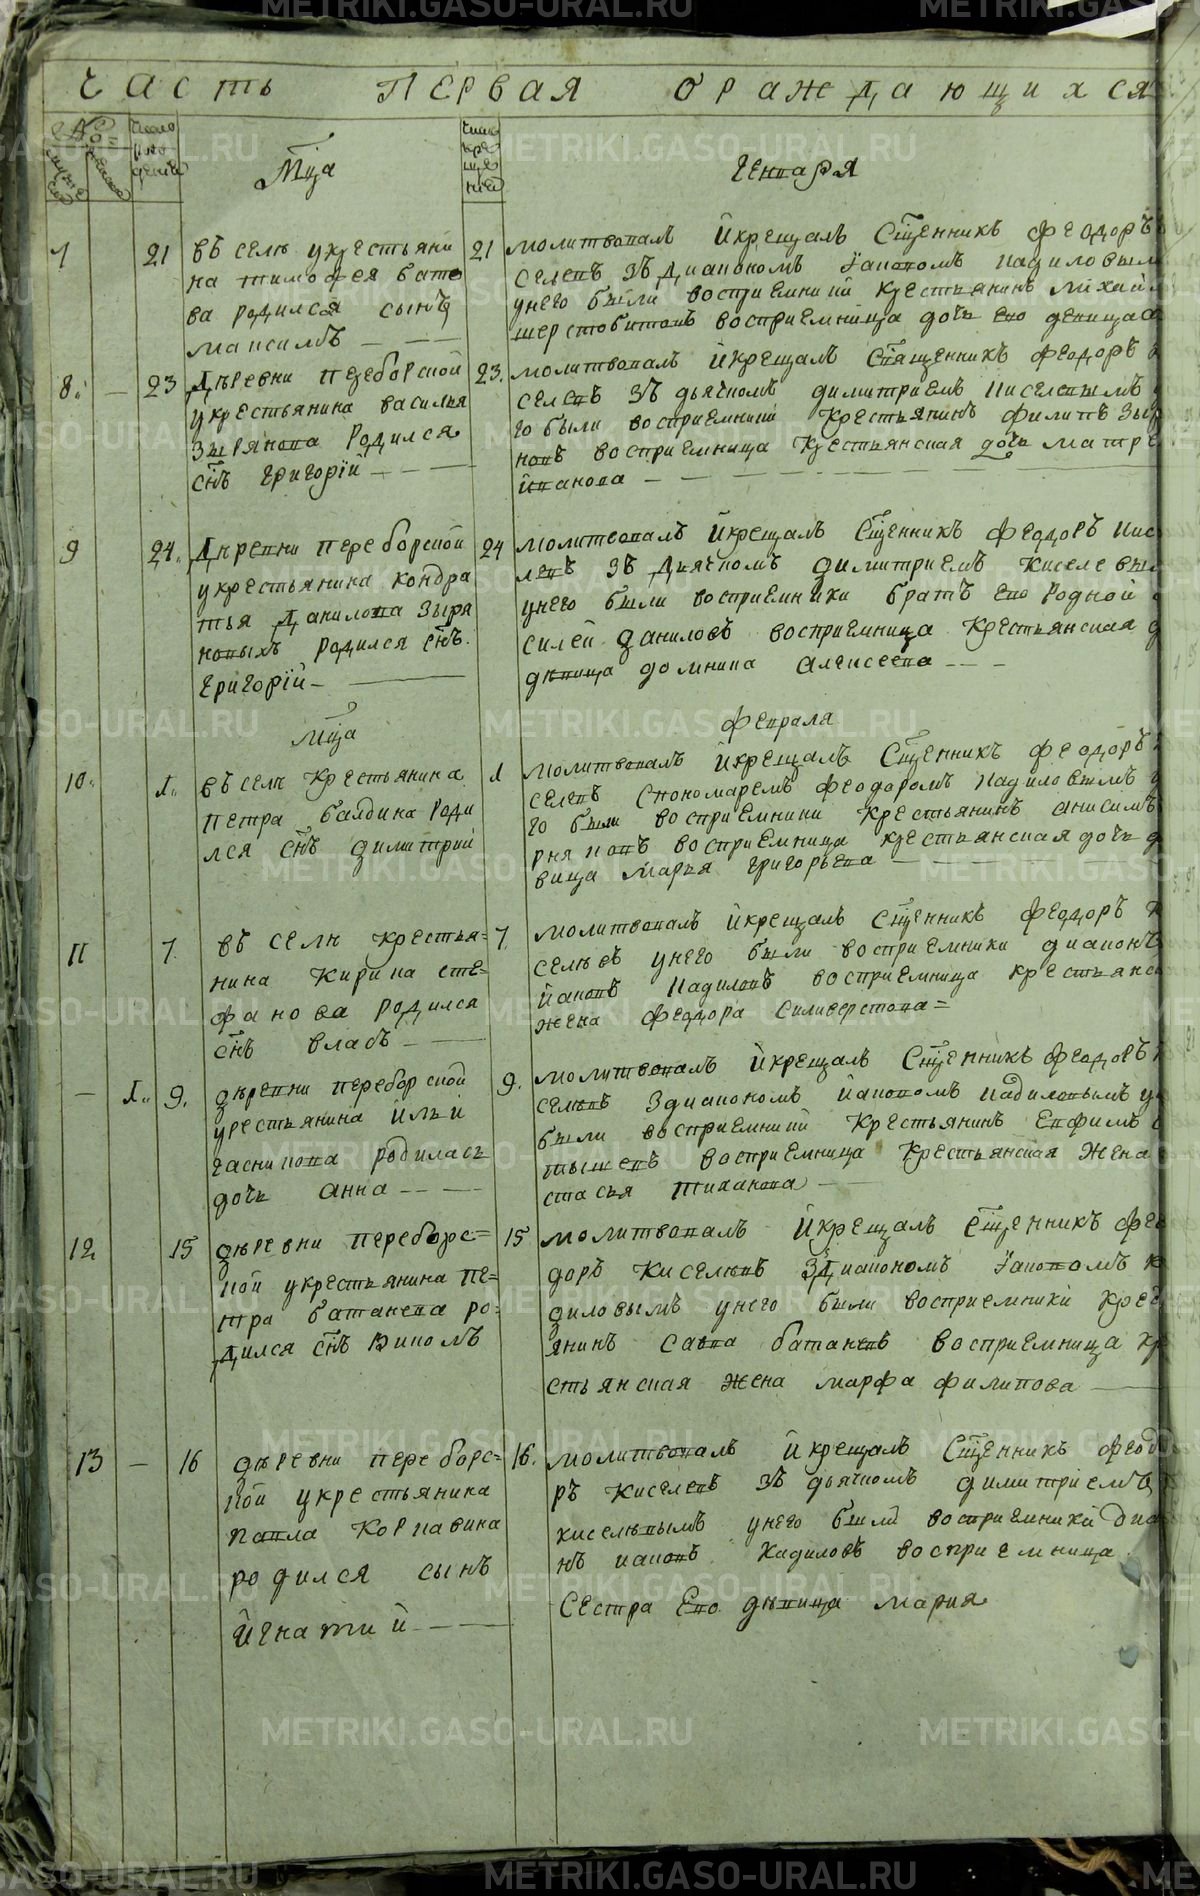 ЧАСТЬ ПЕРВАЯ О РАЖДАЮЩИХСЯ
Мца Генваря
7 21 въ селѣ укрестьяни
на тимофея бато
ва родился сынъ
максимъ
21 молитвовалъ и крещалъ Сщенникъ феодоръ
селевъ зъ диакономъ
унего были восприемники крестьянинъ михаи
шерстобитовъ восприемница дочь его девица
8. 23 Дѣревни переборской
укрестьянина василья
Зырянова Родился
снъ григорій
23. молитвовалъ и крещалъ Священникъ феодоръ
селевъ зъ дьячкомъ димитриемъ киселевымъ
го были восприемники крестьянинъ филипъ Зыр
новъ восприемница крестьянская дочь матре
иванова
9 24. Диревни переборской
укрестьянина кондра
тья Данилова Зыря
новыхъ родился снъ
григорій
24 молитвовалъ и крещалъ Сщенникъ феодоръ кис
левъ зъ Дьячкомъ димитриемъ киселевы
унего были восприемники братъ его Родной
силей даниловъ восприемница крестьянская
дѣвица домнина алексеева
Мца февраля
10. 1. въ селѣ крестьянина
Петра балдина Роди
лся снъ димитрий
1 молитвовалъ и крещалъ Сщенникъ феодоръ
селевъ спономаремъ феодоромъ кадиловымъ
го были восприемники крестьянинъ анисимъ
восприемница крестьянская дочь д
вица марья григорьева
11 7. въ селѣ крестья=
нина кирила сте=
фанова родился
снъ власъ
7. молитвовалъ и крещалъ сщенникъ феодоръ к
сельевъ унего были восприемники диаконъ
кадиловъ восприемница крестьянс
жена феодора Силиверстова=
1. 9. дѣревни переборской
крестьянина ильи
родилась
дочь анна
9. молитвовалъ и крещалъ Сщенникъ феодоръ
сельевъ здиакономъ кадиловымъ у
были восприемники крестьянинъ Ефимъ
восприемница крестьянская жена
стасья тиханова
12 15 дѣревни переборс=
кой укрестьянина пе=
тра батанева ро=
дился снъ
15 молитвовалъ и крещалъ сщенникъ фео
доръ киселевъ здиакономъ к
диловымъ унего были восприемники кре
янинъ савва батаневъ восприемница кр
стьянская жена марфа филипова
13 16 дѣревни переборс=
кой укрестьянина
павла Корнавина
родился сынъ
игнатий
16. молитвовалъ и крещалъ Сщенникъ феод
ръ киселевъ зъ дьячкомъ димитриемъ
киселевымъ унего были восприемники диа
нъ кадиловъ восприемница
Сестра Его дѣвица мария
METRIKI.GASO-URAL.RU